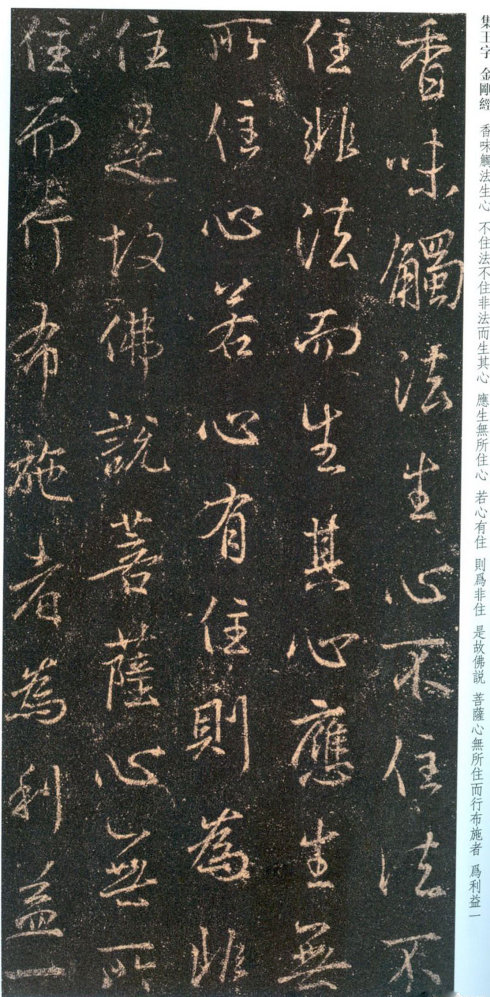 集王字 金剛經 香味觸法生心 不住法不住非法而生其心 應生無所住心 若心有住 則爲非住 是故佛説 菩薩心無所住而行布施者 爲利益一
香味觸法生心不住法不
住非法而生其心應生無
所住心若心有住則為非
住是故佛說菩薩心無所
住而行布施者為利益一